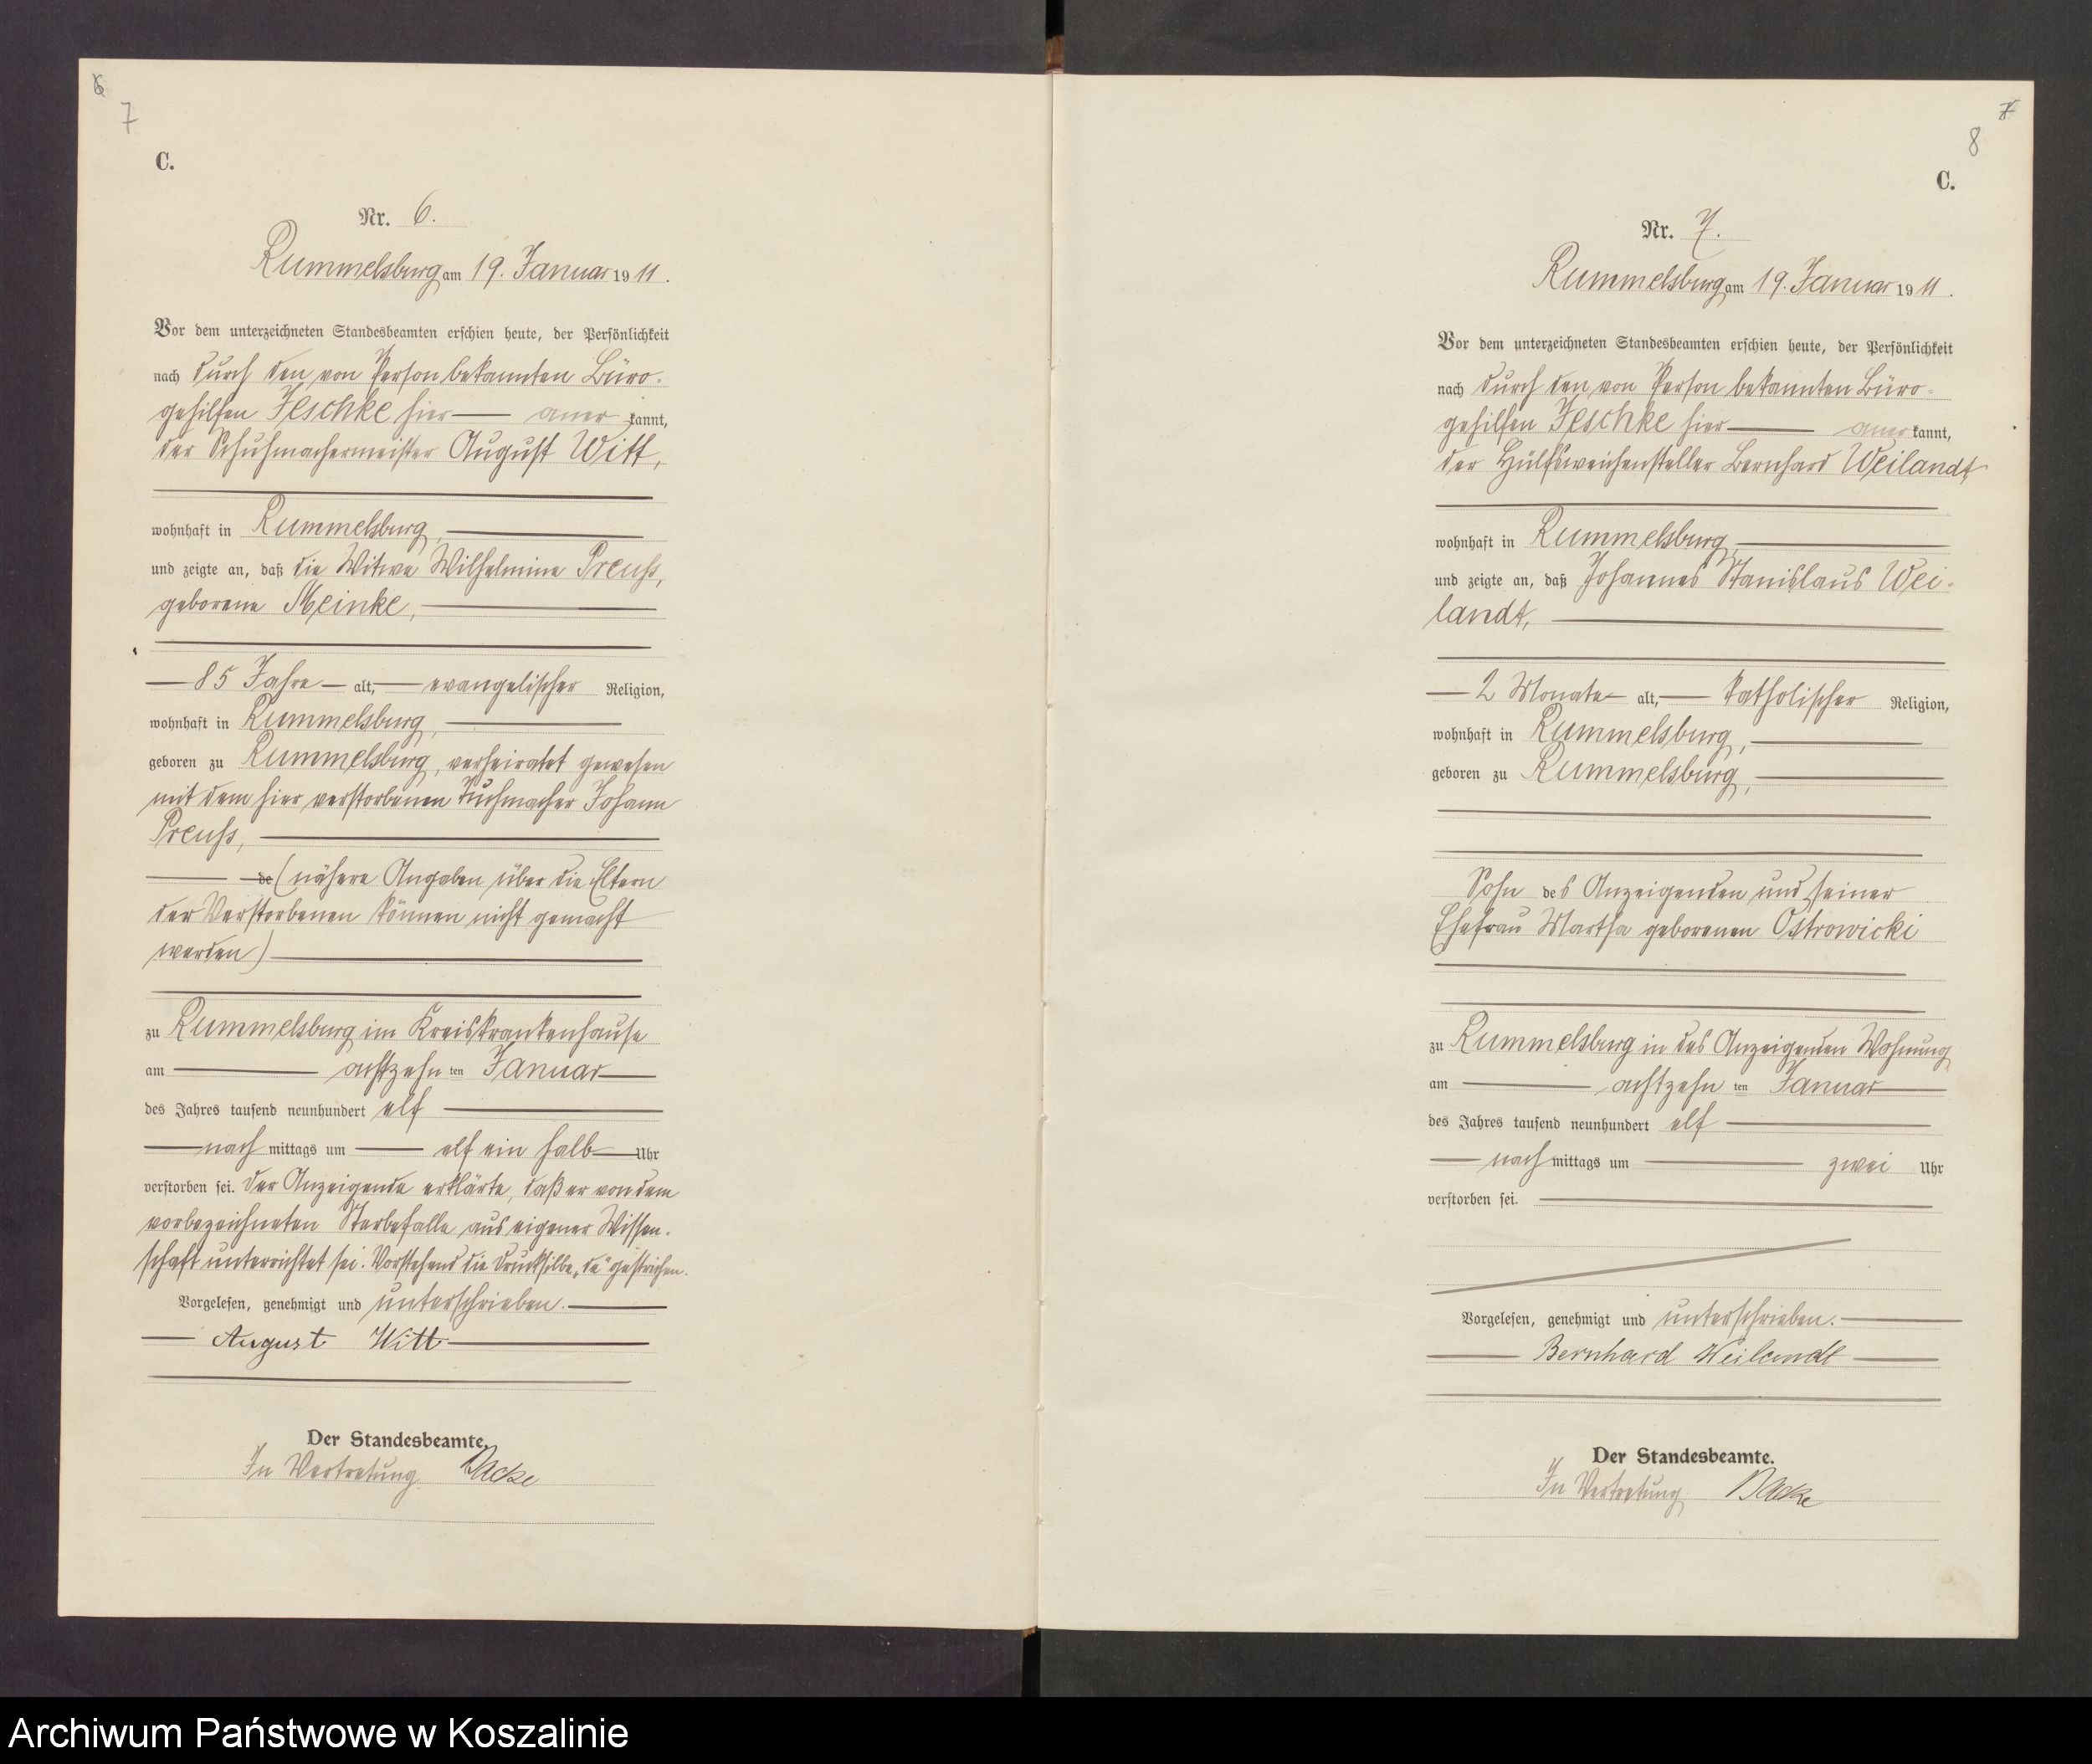 7
C.
Nr. 6.
Rummelsburg am 19. Januar 1911.
Vor dem unterzeichneten Standesbeamten erschien heute, der Persönlichkeit
nach durch den von Person bekannten Büro-
gehilfen Jeschke hier — aner kannt,
der Schuhmachermeister August Witt,
wohnhaft in Rummelsburg,
und zeigte an, daß die Witwe Wilhelmine Preuß,
geborene Meinke,
85 Jahre alt, evangelischer Religion,
wohnhaft in Rummelsburg,
geboren zu Rummelsburg, verheiratet gewesen
mit dem hier verstorbenen Tuchmacher Johann
Preuß,
de (nähere Angaben über die Eltern
der Verstorbenen können nicht gemacht
werden)
zu Rummelsburg im Kreiskrankenhause
am achtzehn ten Januar
des Jahres tausend neunhundert elf
nach mittags um elf ein halb Uhr
verstorben sei. Der Anzeigende erklärte, daß er von dem
vorbezeichneten Sterbefalle aus eigener Wissen-
schaft unterrichtet sei. Vorstehend die Drucksilbe „de" gestrichen.
Vorgelesen, genehmigt und unterschrieben.
August Witt
Der Standesbeamte.
In Vertretung
7
8
C.
Nr. 7.
Rummelsburg am 19. Januar 1911.
Vor dem unterzeichneten Standesbeamten erschien heute, der Persönlichkeit
nach durch den von Person bekannten Büro-
gehilfen Jeschke hier — aner kannt,
der Hülfsweichensteller Bernhard Weilandt,
wohnhaft in Rummelsburg,
und zeigte an, daß Johannes Stanislaus Wei-
landt,
2 Monate alt, katholischer Religion,
wohnhaft in Rummelsburg,
geboren zu Rummelsburg,
Sohn des Anzeigenden und seiner
Ehefrau Martha geborenen Ostrowicki
zu Rummelsburg in des Anzeigenden Wohnung
am achtzehn ten Januar
des Jahres tausend neunhundert elf
nach mittags um zwei Uhr
verstorben sei.
Vorgelesen, genehmigt und unterschrieben.
Bernhard Weilandt
Der Standesbeamte.
In Vertretung
Archiwum Państwowe w Koszalinie